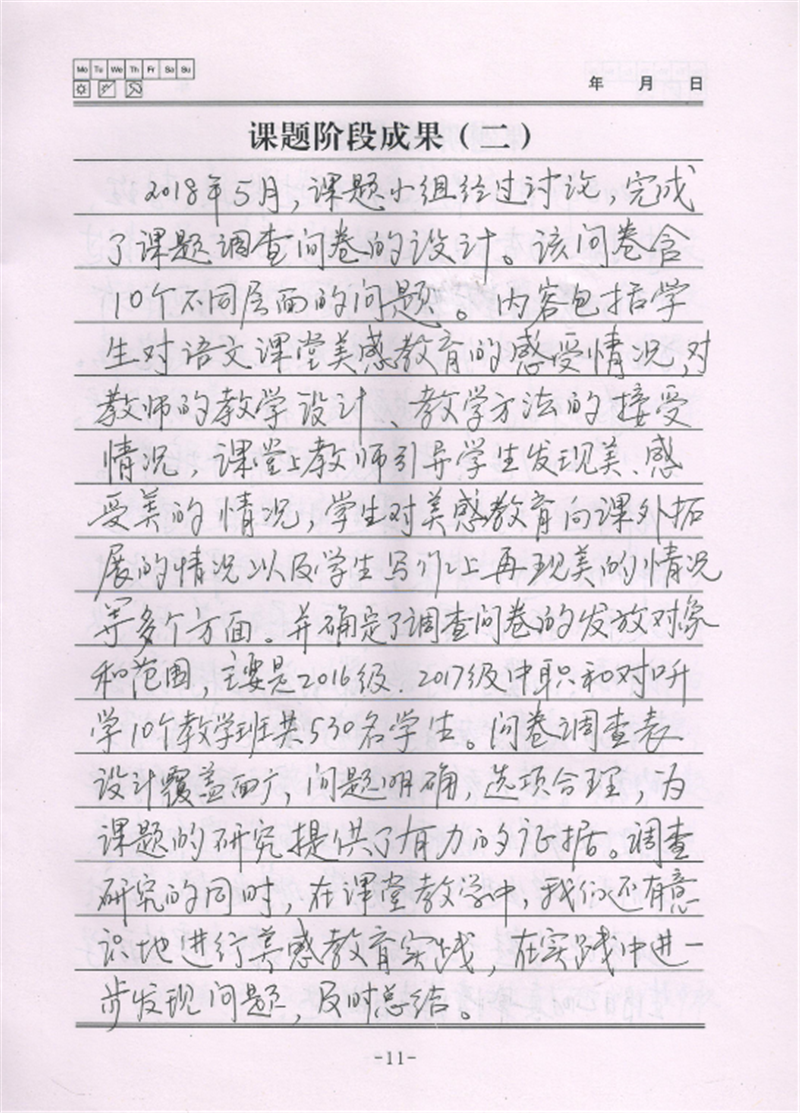 Mo Tu We Th Fr Sa Su
年 月 日
课题阶段成果（二）
2018年5月，课题小组经过讨论，完成
了课题调查问卷的设计。该问卷含
10个不同层面的问题。内容包括学
生对语文课堂美感教育的感受情况，对
教师的教学设计、教学方法的接受
情况，课堂上教师引导学生发现美、感
受美的情况，学生对美感教育向课外拓
展的情况以及学生写作上再现美的情况
等多个方面。并确定了调查问卷的发放对象
和范围，主要是2016级、2017级中职和对口升
学10个教学班共530名学生。问卷调查表
设计覆盖面广，问题明确，选项合理，为
课题的研究提供了有力的证据。调查
研究的同时，在课堂教学中，我们还有意
识地进行美感教育实践，在实践中进一
步发现问题，及时总结。
-11-